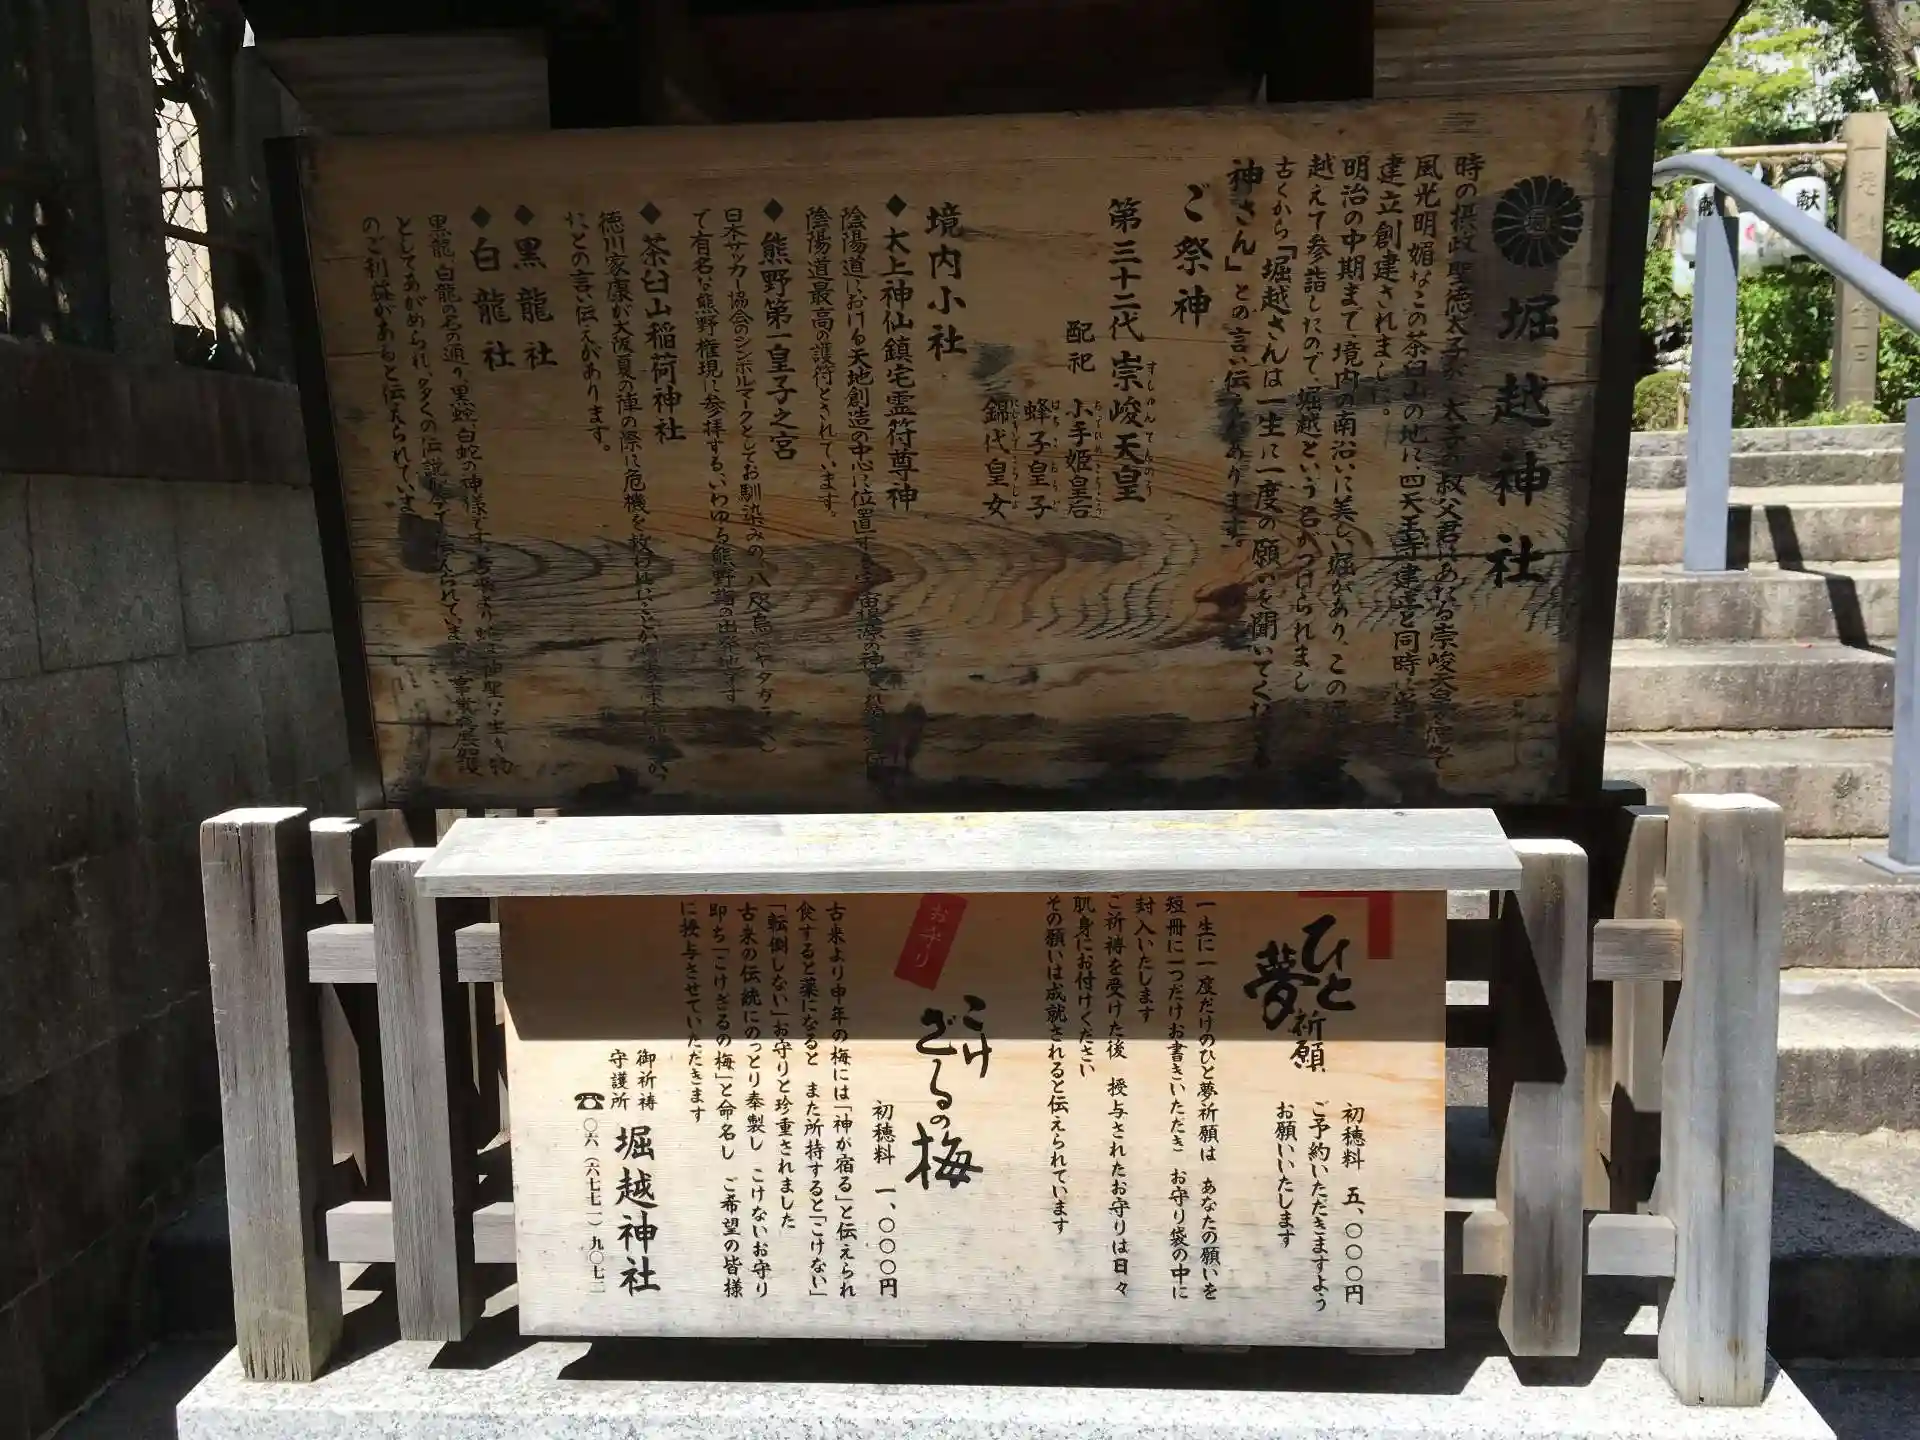 堀越神社
時の摂政聖徳太子が、太子の叔父君にあたる崇峻天皇を偲んで
風光明媚なこの茶臼山の地に、四天王寺建立と同時に
建立創建されました。
明治の中期まで境内の南沿いに美しい堀があり、この
越えて参詣したので、堀越という名がつけられまし
古くから「堀越さんは一生に一度の願いを聞いてくださる
神さん」との言い伝えがあります。
ご祭神
第三十二代 崇峻天皇
すしゅんてんのう
配祀 小手姫皇后
蜂子皇子
錦代皇女
境内小社
◆太上神仙鎮宅霊符尊神
陰陽道における天地創造の中心に位置する宇宙根源の神
陰陽道最高の護符とされています。
◆熊野第一皇子之宮
日本サッカー協会のシンボルマークとしてお馴染みの、八咫烏（ヤタガラス）
で有名な熊野権現に参拝する、いわゆる熊野詣の出発地です
◆茶臼山稲荷神社
徳川家康が大阪夏の陣の際に危機を救
たとの言い伝えがあります。
◆黒龍社
◆白龍社
黒龍、白龍の名の通り、黒蛇、白蛇の神様です。古来より蛇は神聖な生き物
としてあがめられ、多くの伝説が
のご利益があると伝えられていま
献
献
ひと夢祈願
初穂料 五、〇〇〇円
ご予約いただきますよう
お願いいたします
一生に一度だけのひと夢祈願は あなたの願いを
短冊に一つだけお書きいただき お守り袋の中に
封入いたします
ご祈祷を受けた後 授与されたお守りは日々
肌身にお付けください
その願いは成就されると伝えられています
お守り
こけざるの梅
初穂料 一、〇〇〇円
古来より申年の梅には「神が宿る」と伝えられ
食すると薬になると また所持すると「こけない」
「転倒しない」お守りと珍重されました
古来の伝統にのっとり奉製し こけないお守り
即ち「こけざるの梅」と命名し ご希望の皆様
に授与させていただきます
御祈祷
守護所 堀越神社
☎〇六（六七七一）九〇七二